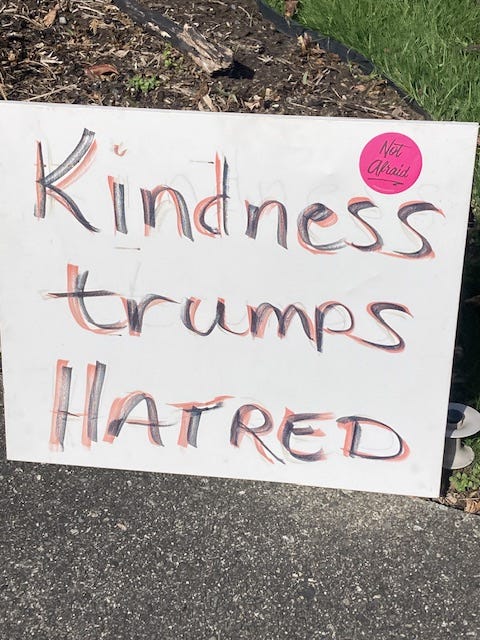 Kindness
trumps
HATRED
Not
Afraid